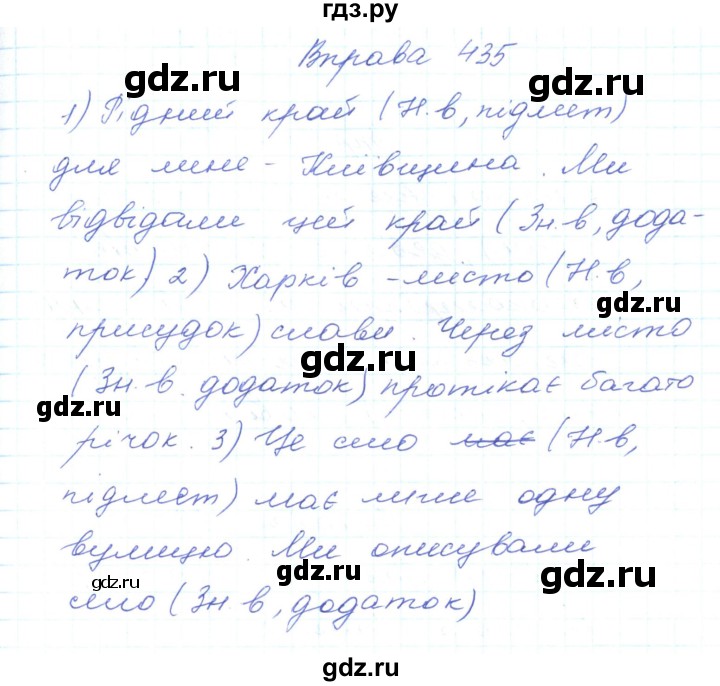 гдз.ру
Вправа 435
gdz.ru gdz.ru
1) Рідний край (Н.в, підмет)
для мене - Київщина. Ми
відвідали цей край (Зн.в, дода-
ток) 2) Харків - місто (Н.в,
gdz.ru
присудок) слави. Через місто
gdz.ru
(Зн.в. додаток) протікає багато
gdz.ru
річок. 3) Це село має (Н.в,
підмет) має лише одну
вулицю. Ми описували
gdz.ru gdz.ru gdz.ru
село (Зн.в, додаток)
gdz.ru